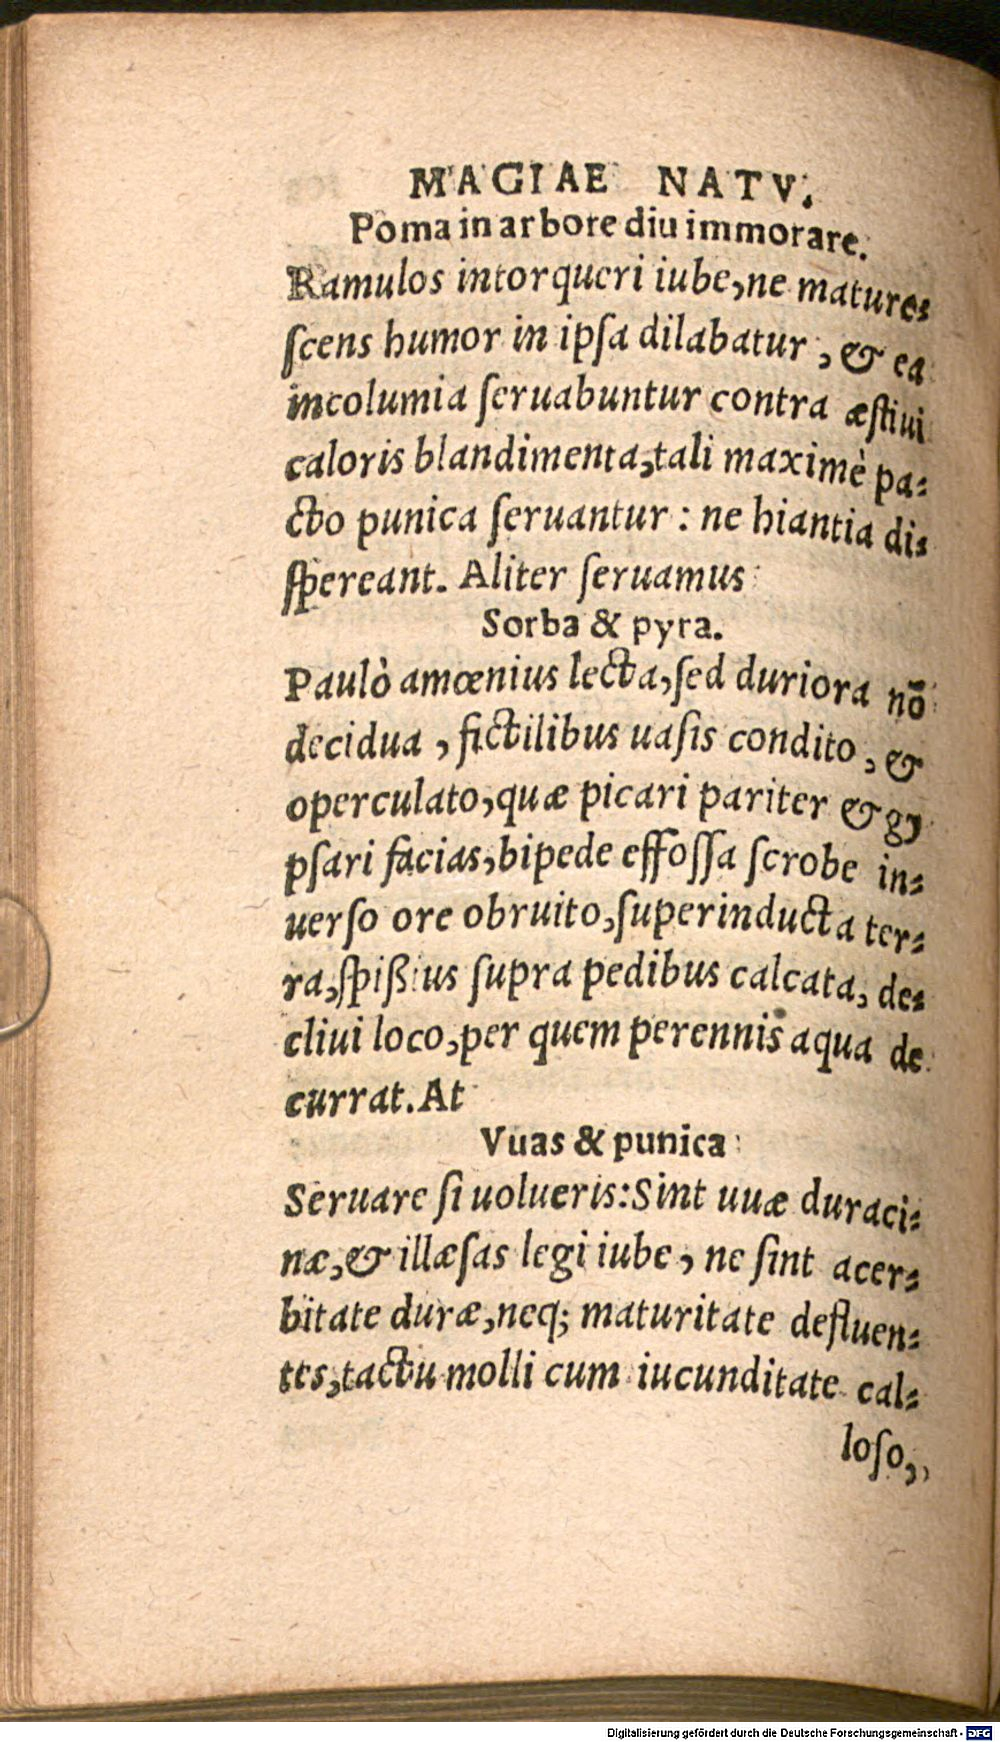 MAGIAE NATV.
Poma in arbore diu immorare.
Ramulos intorqueri iube, ne mature-
ſcens humor in ipſa dilabatur, & ea
incolumia ſeruabuntur contra æſtiui
caloris blandimenta, tali maximè pa-
cto punica ſeruantur: ne hiantia di-
ſpereant. Aliter ſeruamus
Sorba & pyra.
Paulò amœnius lecta, ſed duriora nō
decidua, fictilibus uaſis condito, &
operculato, quæ picari pariter & gy
pſari facias, bipede effoſſa ſcrobe in-
uerſo ore obruito, ſuperinducta ter-
ra, ſpißius ſupra pedibus calcata, de-
cliui loco, per quem perennis aqua de
currat. At
Vuas & punica
Seruare ſi uolueris: Sint uuæ duraci-
næ, & illæſas legi iube, ne ſint acer-
bitate duræ, neq; maturitate defluen-
tes, tactu molli cum iucunditate cal-
loſo,
Digitalisierung gefördert durch die Deutsche Forschungsgemeinschaft - DFG